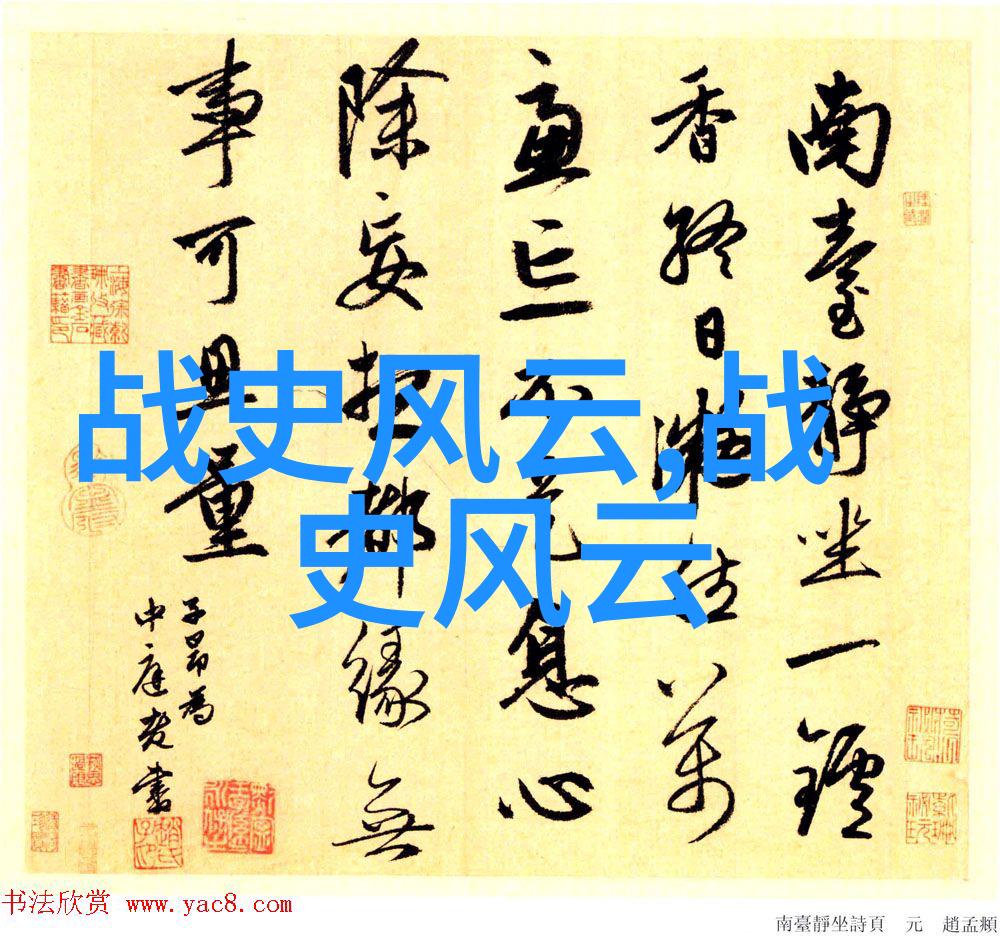 南臺靜坐一鑪
香終日凝然萬
慮亡不是息心
除妄想都緣無
事可思量
子昂為
中庭老書
战史风云,战
史风云
书法欣赏 www.yac8.com
南臺靜坐詩頁 元 趙孟頫